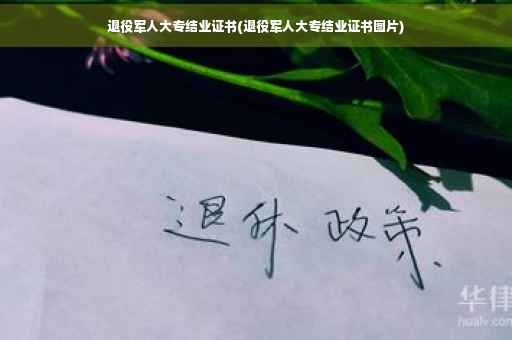 退役军人大专结业证书(退役军人大专结业证书图片)
退休政策
华律
hualv.com